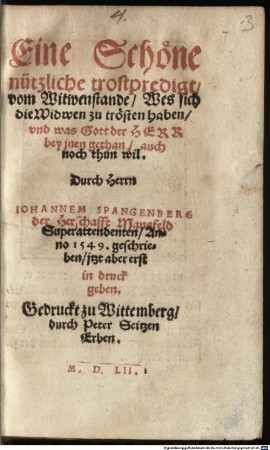 4.
3
Eine Schöne
nützliche trostpredigt/
vom Witwenstande/ Wes sich
die Widwen zu trösten haben/
vnd was Gott der HERR
bey jnen gethan/ auch
noch thun wil.
Durch Herrn
IOHANNEM SPANGENBERG
der Herschafft Mansfeld
Superattendenten/ An-
no 1549. geschrie-
ben/ jtzt aber erst
in druck
geben.
Gedruckt zu Wittemberg/
durch Peter Seitzen
Erben.
M. D. LII.